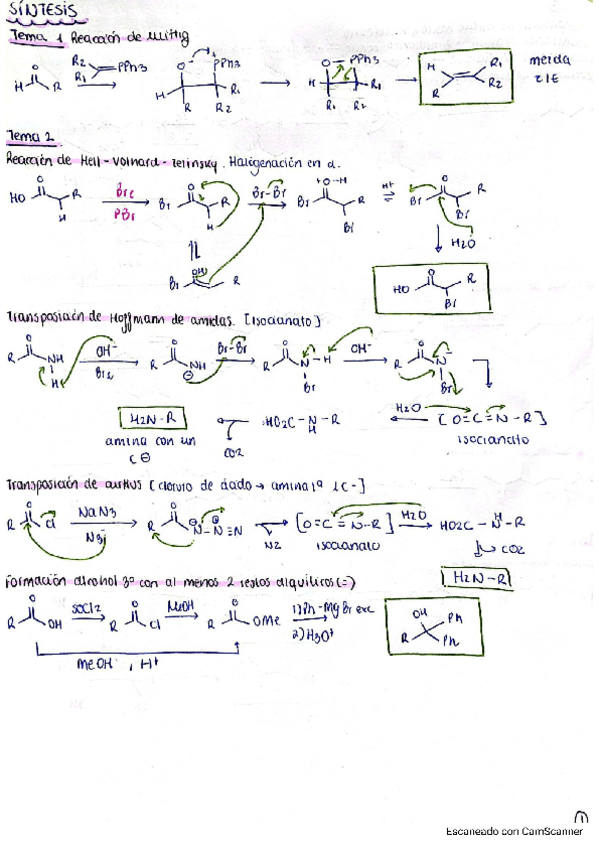 SÍNTESIS
Tema 1 Reacción de Wittig
H O R R2 R1 PPh3 O⁻ PPh3 H R R1 R2 O PPh3 H R R1 R2 H R R1 R2 mezcla
Z/E
Tema 2
Reacción de Hell-Volhard-Zelinsky. Halogenación en α.
HO O R H Br2 PBr Br O R H Br-Br Br O-H R Br H+ Br O R Br
H2O
Br OH R
HO O R Br
Transposición de Hoffmann de amidas. [isocianato]
R O NH H OH⁻ Br2 R O NH ⊖ Br-Br R O N-H Br OH⁻ R O N⁻ Br
H2N-R CO2 HO2C-N-R H H2O [O=C=N-R]
amina con un C⊖ isocianato
Transposición de curtius [cloruro de ácido → amina 1ª 1C-]
R O Cl NaN3 N3⁻ R O N-N≡N N2 [O=C=N-R] H2O HO2C-N-R H
isocianato CO2
H2N-R
Formación alcohol 3º con al menos 2 restos alquílicos (=)
R O OH SOCl2 R O Cl MeOH R O OMe 1) Ph-MgBr exc OH Ph R Ph
2) H3O+
MeOH, H+
1
Escaneado con CamScanner